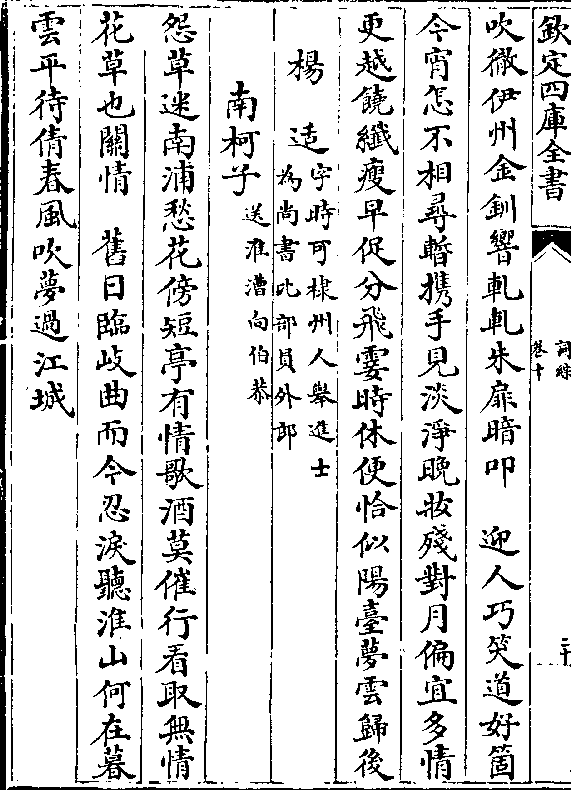 欽定四庫全書
詞綜
卷十
二十
吹徹伊州金釧響軋軋朱扉暗叩　迎人巧笑道好箇
今宵怎不相尋暫攜手見淡淨晚妝殘對月偏宜多情
更越饒纖瘦早促分飛霎時休便恰似陽臺夢雲歸後
楊适字時可棣州人舉進士
為尚書比部員外郎
南柯子送淮漕向伯恭
怨草迷南浦愁花傍短亭有情歌酒莫催行看取無情
花草也關情　舊日臨岐曲而今忍淚聽淮山何在暮
雲平待倩春風吹夢過江城